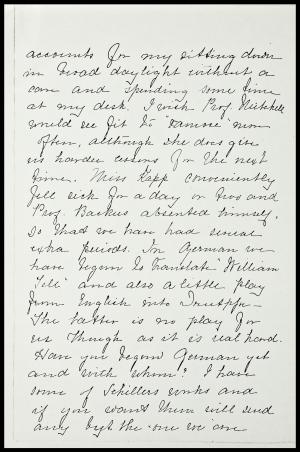 accounts for my sitting down
in broad daylight without a
care and spending some time
at my desk. I wish Prof. Mitchell
would see fit to "vamose" more
often, although she does give
us harder lessons for the next
time. Miss Kapp conveniently
fell sick for a day or two and
Prof. Backus absented himself,
so that we have had several
extra periods. In German we
have begun to translate "William
Tell" and also a little play
from English into
The latter is no play for
us though as it is real hard.
Have you begun German yet
and with whom? I have
some of Schillers works and
if you want them will send
any but the one we are